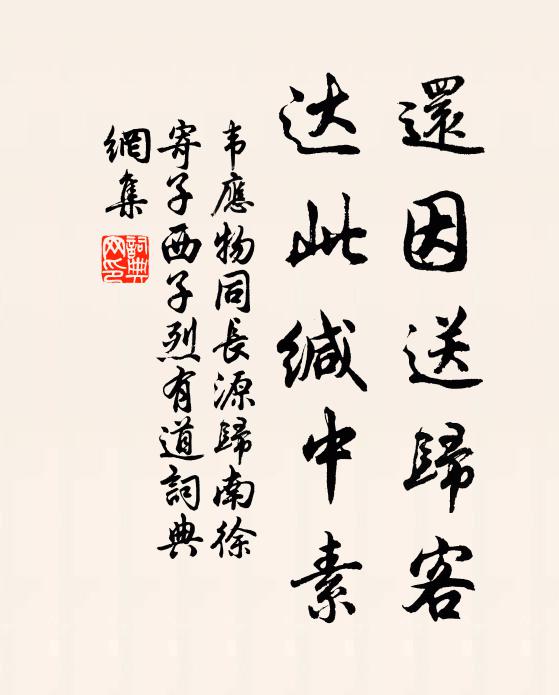 還因送歸客
达此缄中素
韦應物同長源歸南徐
寄子西子烈有道詞典
網集
詞典
网印